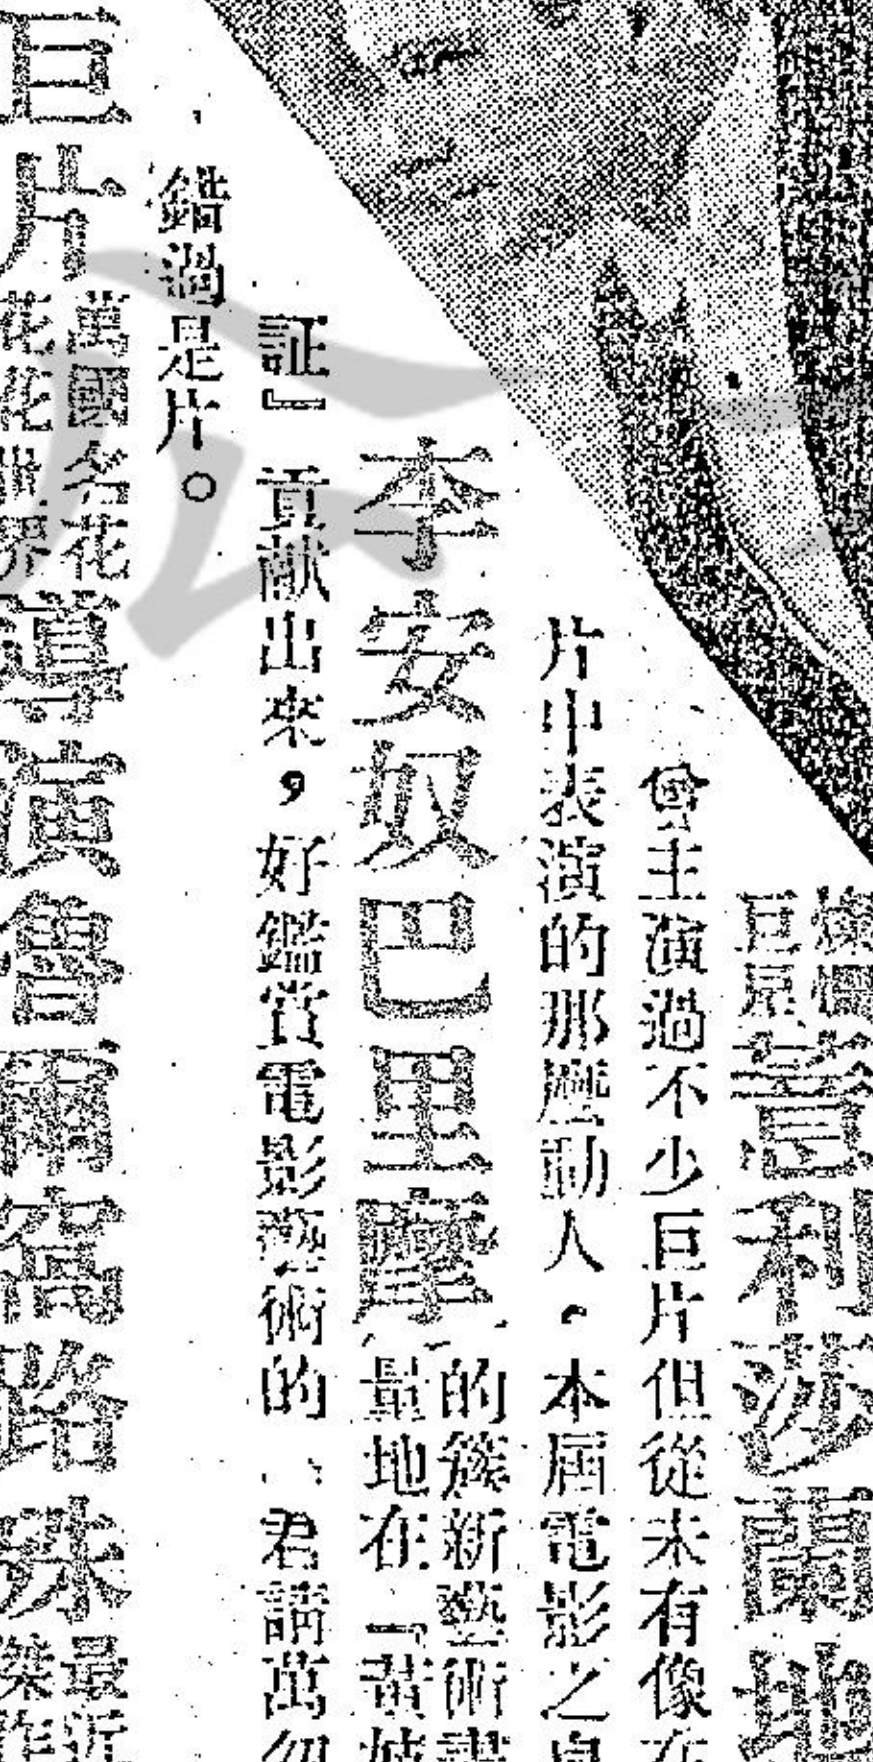 巨星
言利莎蘭地
曾主演過不少巨片但從未有像在
片中表演的那麼動人。本屆電影之皇
李安奴巴里摩
的簇新藝術盡
量地在『黃妓
証』貢献出來，好鑑賞電影藝術的、君請萬勿
錯過是片。
巨片
萬國名花
花花世界
導演魯爾窩路殊
最近
傑作